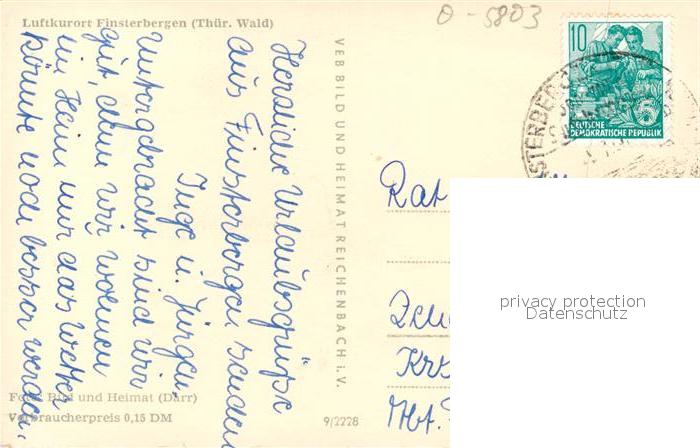 Luftkurort Finsterbergen (Thür. Wald)
0-5803
Herzliche Urlaubsgrüße
aus Finsterbergen senden
Inge u. Jürgen
Untergebracht sind wir
gut, denn wir wohnen
im Heim nur das Wetter
könnte noch besser werden.
VEB BILD UND HEIMAT REICHENBACH i. V.
10
5
DEUTSCHE
DEMOKRATISCHE REPUBLIK
Rat
Krs
Abt.
privacy protection
Datenschutz
Foto: Bild und Heimat (Darr)
Verbraucherpreis 0,15 DM
9/2228